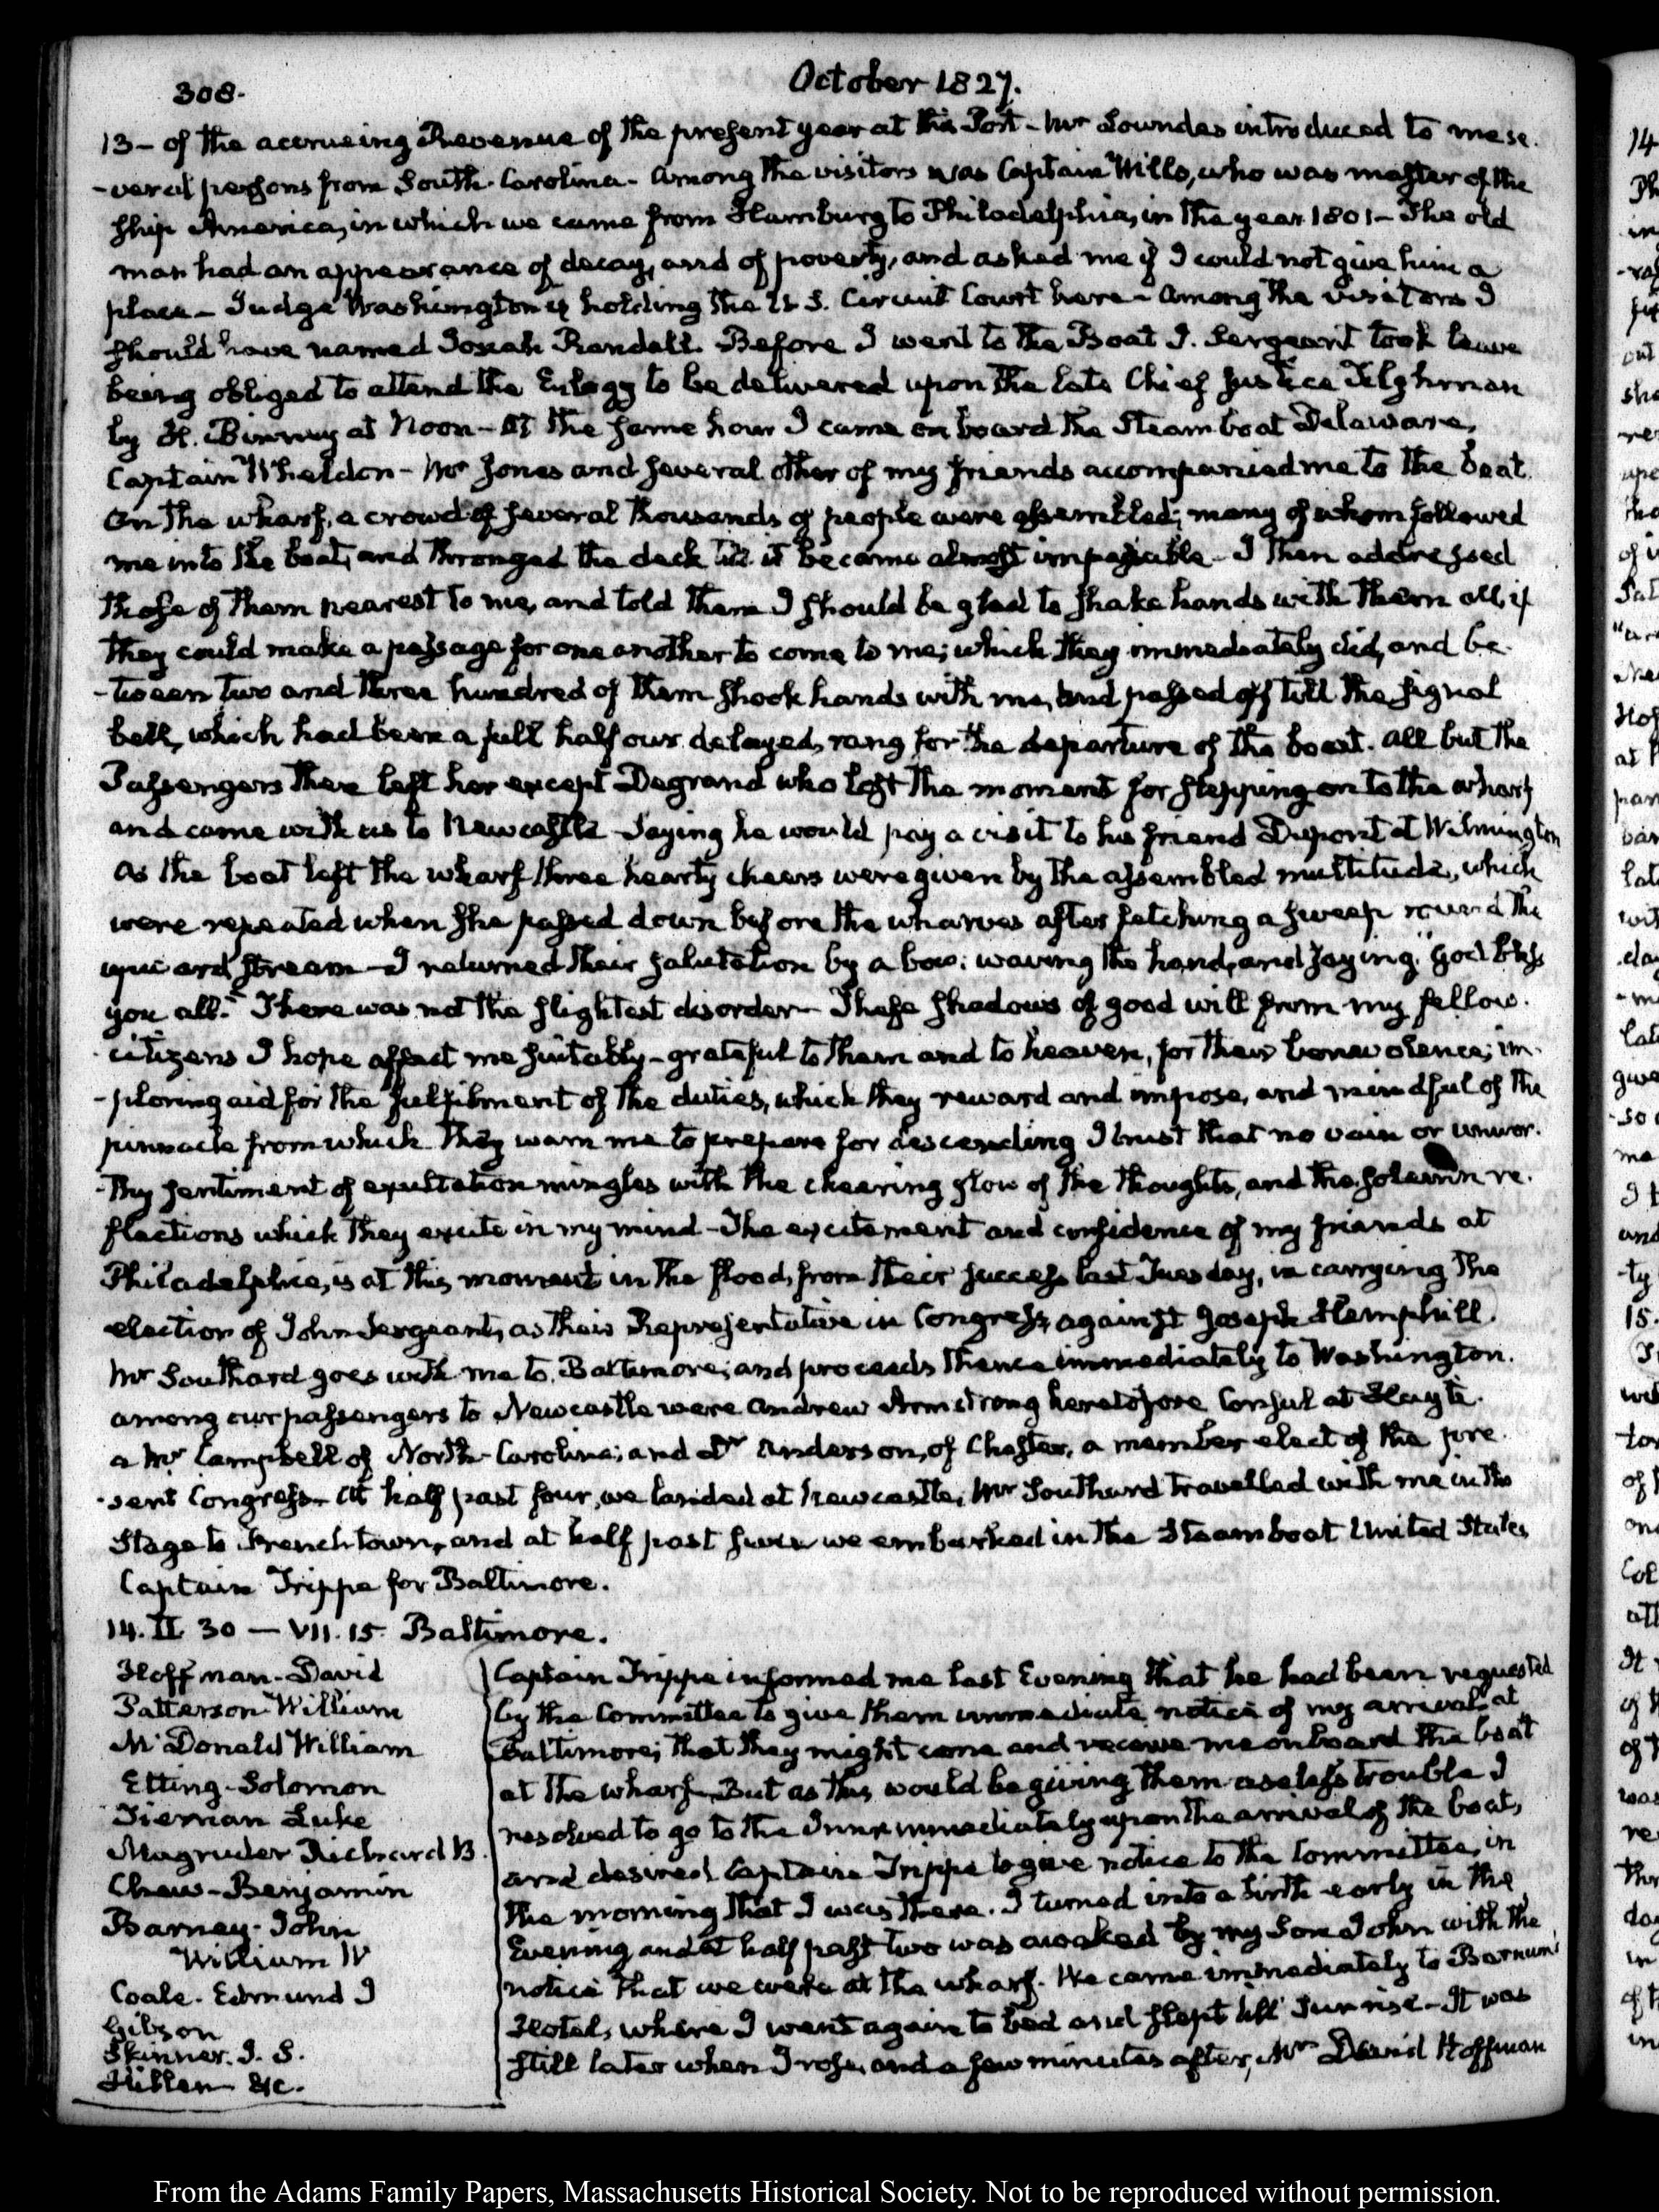 308.
October 1827.
13 - of the accrueing Revenue of the present year at this Port - Mr Lowndes introduced to me se-
-veral persons from South-Carolina - Among the visitors was Captain Wills, who was master of the
ship America, in which we came from Hamburg to Philadelphia, in the year 1801 - The old
man had an appearance of decay, and of poverty, and asked me if I could not give him a
place - Judge Washington is holding the U.S. Circuit Court here - Among the visitors I
should have named Josiah Randall. Before I went to the Boat J. Sergeant took leave
being obliged to attend the Eulogy to be delivered upon the late Chief Justice Tilghman
by H. Binney at Noon - At the same hour I came on board the Steam boat Delaware,
Captain Wheldon - Mr Jones and several other of my friends accompanied me to the boat.
On the wharf, a crowd of several thousands of people were assembled; many of whom followed
me into the boat, and thronged the deck till it became almost impassable - I then addressed
those of them nearest to me, and told them I should be glad to shake hands with them all, if
they could make a passage for one another to come to me; which they immediately did, and be-
-tween two and three hundred of them shook hands with me, and passed off till the signal
bell, which had been a full half our delayed, rang for the departure of the boat. All but the
Passengers then left her except Degrand who lost the moment for stepping on to the wharf
and came with us to Newcastle - saying he would pay a visit to his friend Dupont at Wilmington
As the boat left the wharf three hearty cheers were given by the assembled multitude, which
were repeated when she passed down before the wharves after fetching a sweep round the
upward stream - I returned their salutation by a bow: waving the hand, and saying "God bless
you all." There was not the slightest disorder - These shadows of good will from my fellow-
citizens I hope affect me suitably - grateful to them and to heaven, for their benevolence; im-
-ploring aid for the fulfilment of the duties, which they reward and impose, and mindful of the
pinnacle from which they warn me to prepare for descending I trust that no vain or unwor-
-thy sentiment of exultation mingles with the cheering glow of the thoughts, and the solemn re-
flections which they excite in my mind - The excitement and confidence of my friends at
Philadelphia, is at this moment in the flood, from their success last Tuesday, in carrying the
election of John Sergeant, as their Representative in Congress, against Joseph Hemphill.
Mr Southard goes with me to Baltimore; and proceeds thence immediately to Washington.
among our passengers to Newcastle were Andrew Armstrong heretofore Consul at Hayti.
a Mr Campbell of North-Carolina; and Dr Anderson, of Chester, a member elect of the pre-
-sent Congress - At half past four, we landed at Newcastle, Mr Southard travelled with me in the
Stage to Frenchtown, and at half past seven we embarked in the Steamboat United States
Captain Trippe for Baltimore.
14. II. 30 - VII. 15. Baltimore.
Hoffman - David
Patterson William
McDonald William
Etting - Solomon
Tiernan Luke
Magruder Richard B.
Chew - Benjamin
Barney - John
William W
Coale - Edmund J
Gibson
Skinner. J. S.
&c.
Captain Trippe informed me last Evening that he had been requested
by the Committee to give them immediate notice of my arrival at
Baltimore; that they might come and receive me on board the boat
at the wharf. But as this would be giving them useless trouble I
resolved to go to the Inn immediately upon the arrival of the boat,
and desired Captain Trippe to give notice to the Committee, in
the morning that I was there. I turned into a birth early in the
Evening and at half past two was awaked by my Son John with the
notice that we were at the wharf. We came immediately to Barnum's
Hotel, where I went again to bed and slept till Sun rise - It was
still later when I rose, and a few minutes after, Mr David Hoffman
From the Adams Family Papers, Massachusetts Historical Society. Not to be reproduced without permission.